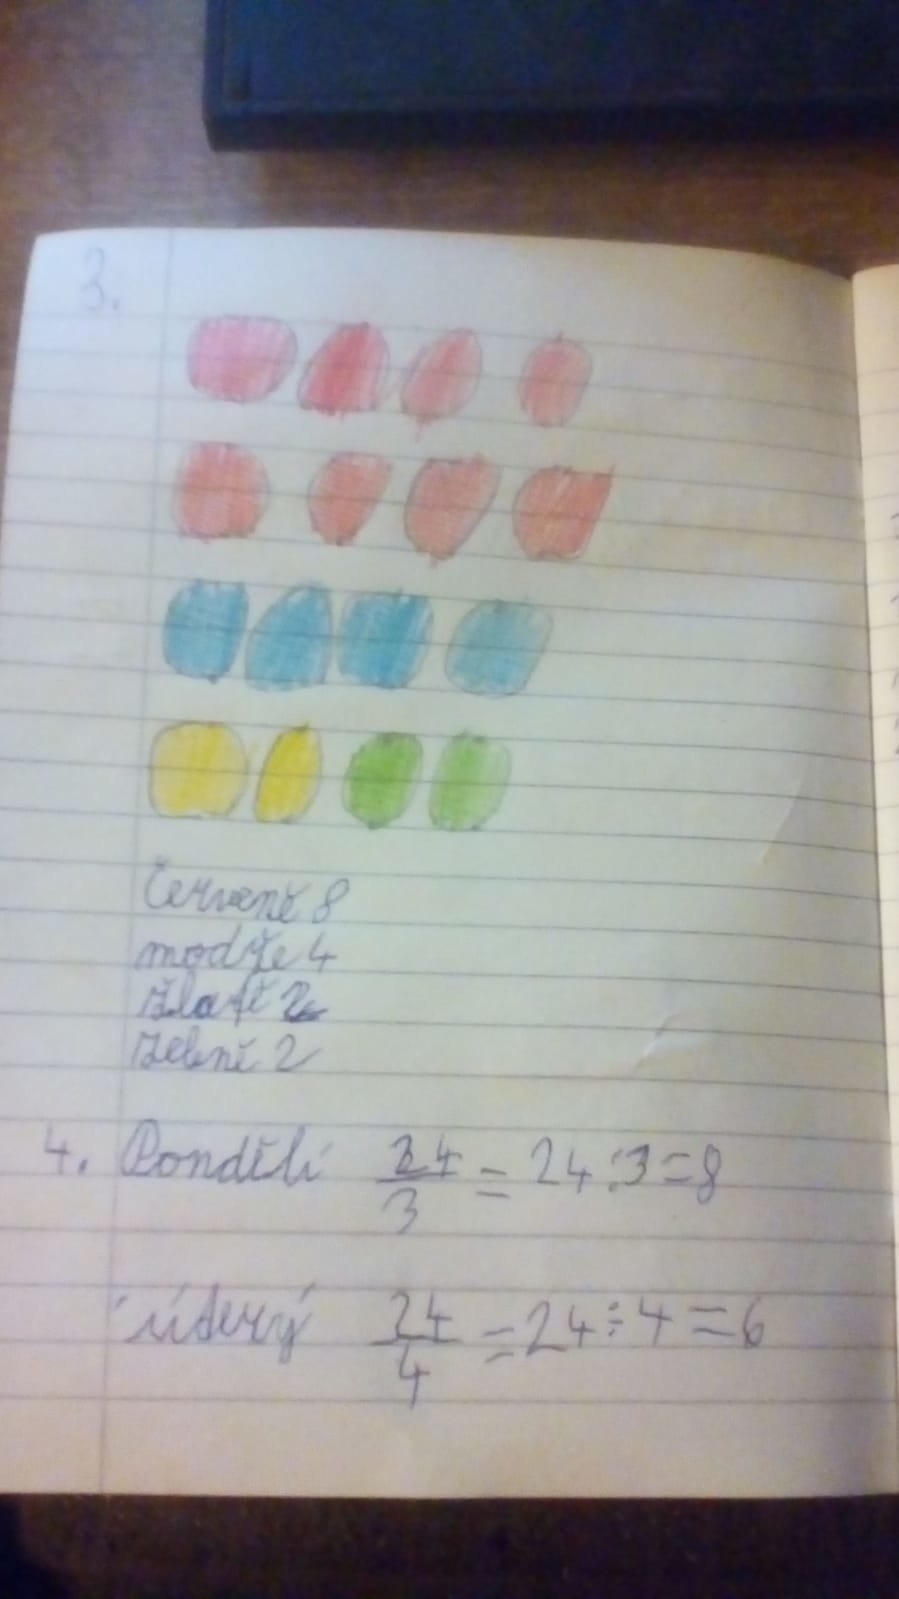 3.
Červeně 8
modře 4
žlutě 2
zeleně 2
4. Pondělí 24/3 = 24:3=8
úterý 24/4 = 24÷4=6